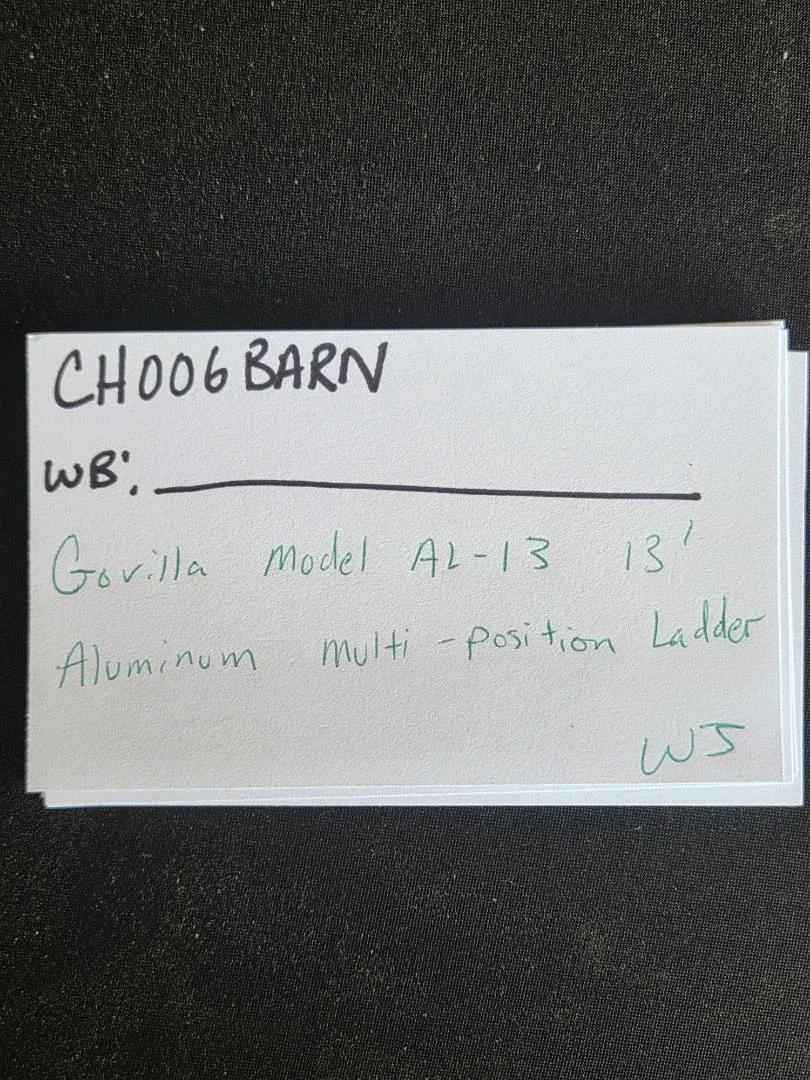 CH006 BARN
WB:
Gorilla Model AL-13 13'
Aluminum Multi-Position Ladder
WJ